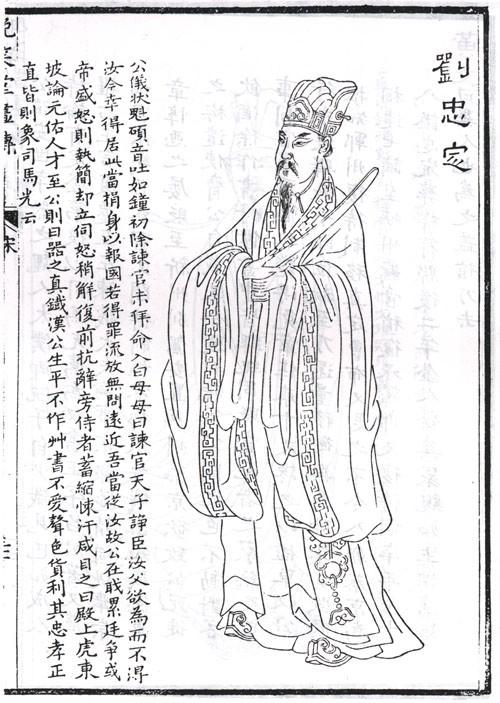 劉忠定
公儀狀魁碩音吐如鐘初除諫官未拜命入白母母曰諫官天子諍臣汝父欲為而不得
汝今幸得居此當捐身以報國若得罪流放無問遠近吾當從汝故公在職累廷爭或
帝盛怒則執簡却立伺怒稍解復前抗辭旁侍者蓄縮悚汗咸目之曰殿上虎東
坡論元佑人才至公則曰器之真鐵漢公生平不作艸書不愛聲色貨利其忠孝正
直皆則象司馬光云
晩笑堂畫傳
宋